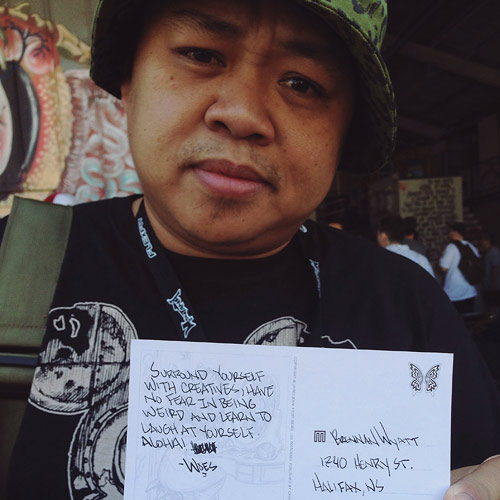 SURROUND YOURSELF
WITH CREATIVES, HAVE
NO FEAR IN BEING
WEIRD AND LEARN TO
LAUGH AT YOURSELF
ALOHA!
-WOES
BRENNAN WYATT
1240 HENRY ST.
HALIFAX, NS